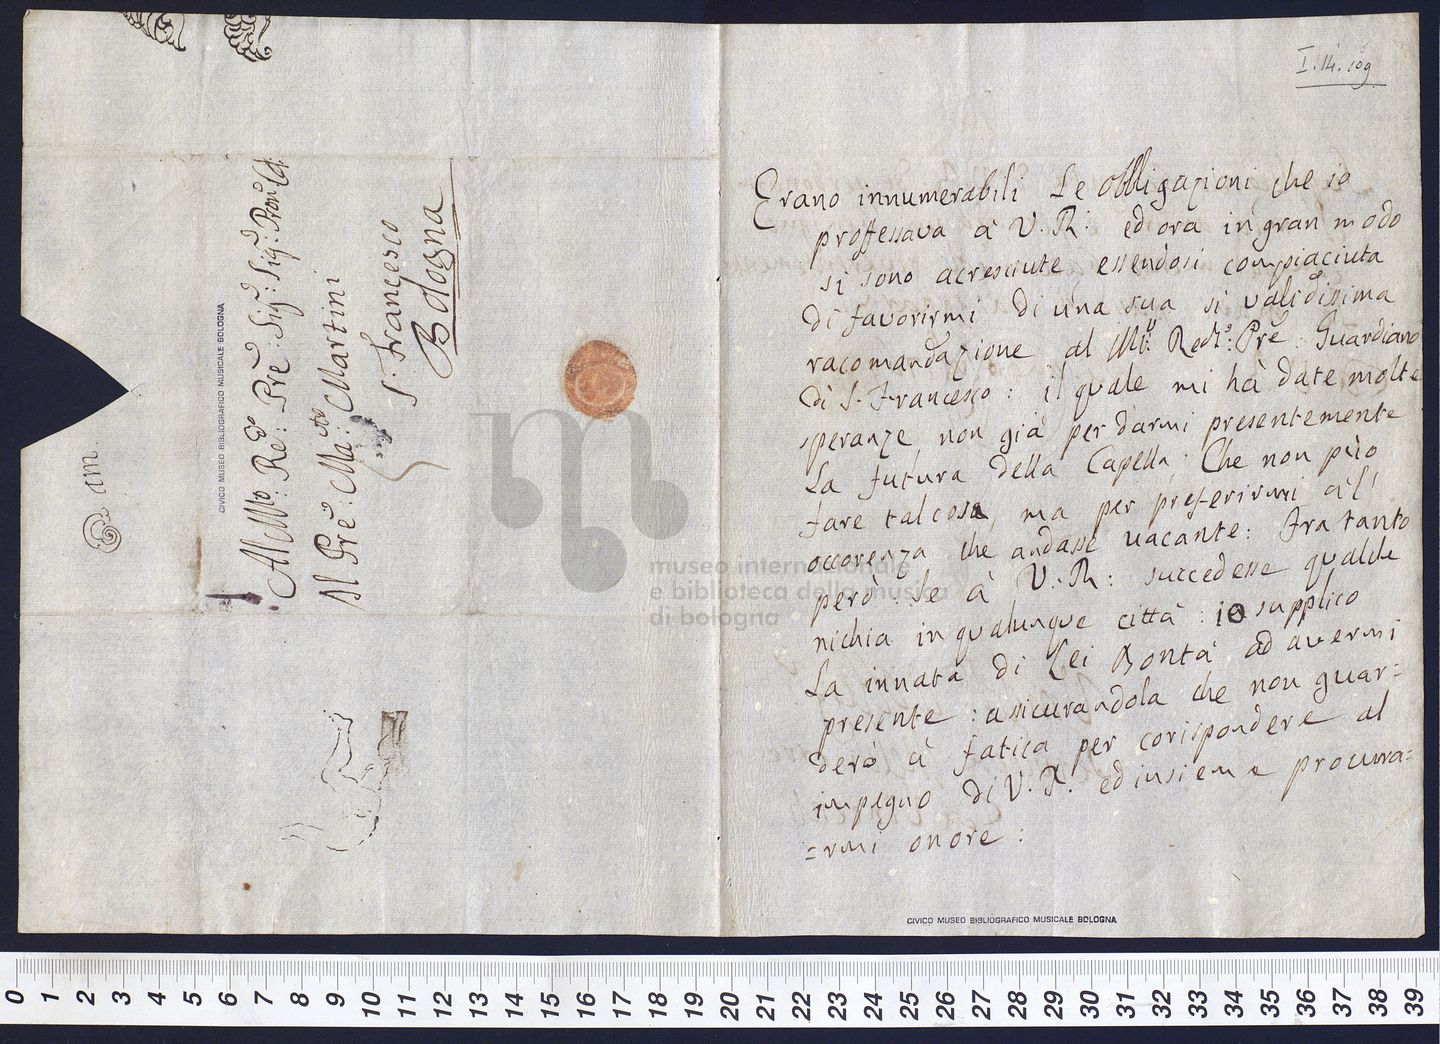 I.14.109
Erano innumerabili Le obbligazioni che io
proffessava à V. R: ed ora in gran modo
si sono acresciute essendosi compiaciuta
di favorirmi di una sua si validissima
racomandazione al Mto: Redo: Pre: Guardiano
di S. Francesco: il quale mi hà date molte
speranze non già per darmi presentemente
La futura della Capella: Che non può
fare tal cosa, ma per preferirmi all'
occorenza che andasse vacante: fra tanto
però: se à V. R: succedesse qualche
nichia in qualunque città: io supplico
La innata di Lei Bontà ad avermi
presente: assicurandola che non guar-
derò à fatica per corispondere al
impegno di V. R. ed insieme procura=
=rmi onore:
CIVICO MUSEO BIBLIOGRAFICO MUSICALE BOLOGNA
Al Mto: Redo: Pre: Sigr: Sigr: Prone
Il Pre: Ma:tro Martini
S. Francesco
Bologna
CIVICO MUSEO BIBLIOGRAFICO MUSICALE BOLOGNA
museo internazionale
e biblioteca della musica
di bologna
0 1 2 3 4 5 6 7 8 9 10 11 12 13 14 15 16 17 18 19 20 21 22 23 24 25 26 27 28 29 30 31 32 33 34 35 36 37 38 39